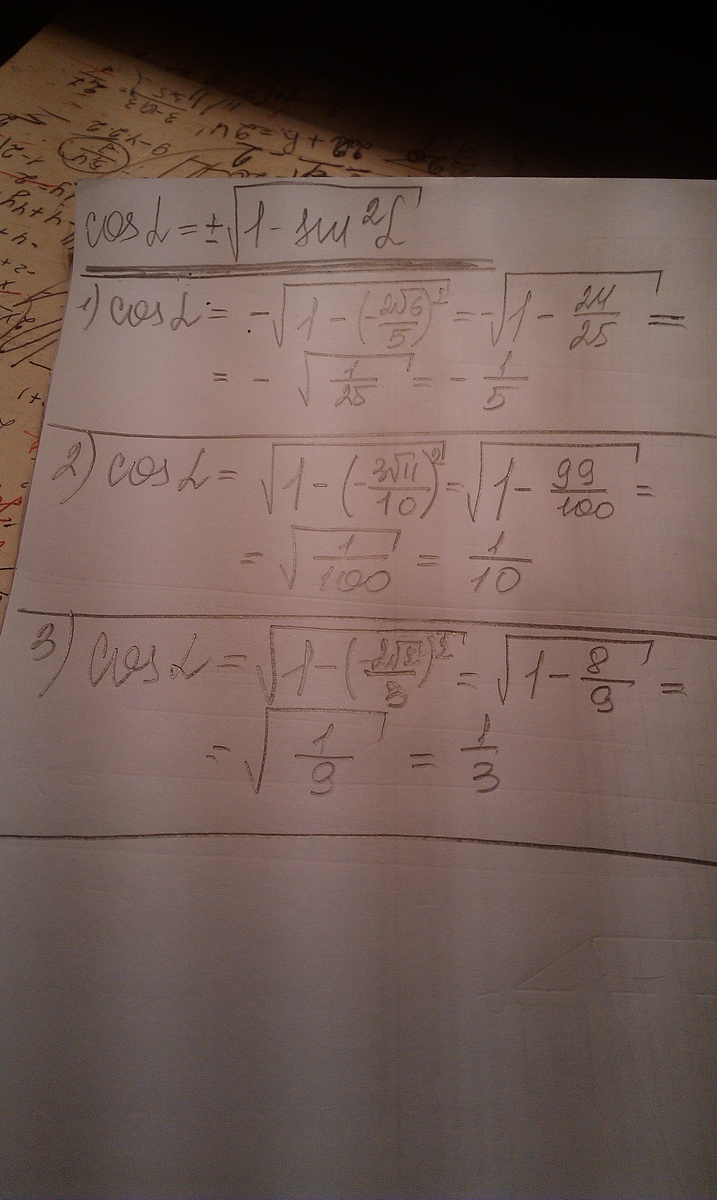 cos α = ±√(1 - sin²α)
1) cos α = -√(1 - (-2√6/5)²) = -√(1 - 24/25) =
= - √(1/25) = - 1/5
2) cos α = √(1 - (-3√11/10)²) = √(1 - 99/100) =
= √(1/100) = 1/10
3) cos α = √(1 - (-2√2/3)²) = √(1 - 8/9) =
= √(1/9) = 1/3